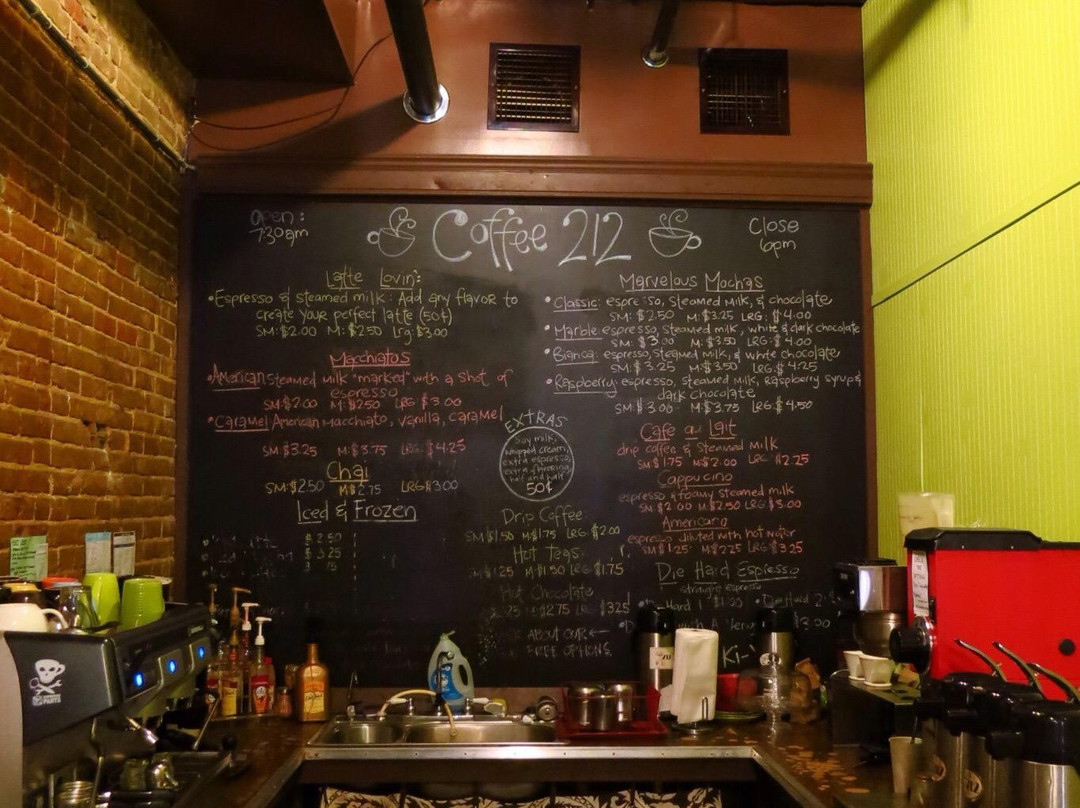 open:
7:30am
Coffee 212
Close
6pm
Latte Lovin':
•Espresso & steamed milk: Add any flavor to
create your perfect latte (50¢)
SM: $2.00 M: $2.50 Lrg: $3.00
Macchiatos
•American steamed milk "marked" with a shot of
espresso
SM: $2.00 M: $2.50 LRG: $3.00
•Caramel American Macchiato, vanilla, caramel
SM: $3.25 M: $3.75 LRG: $4.25
Chai
SM: $2.50 M: $2.75 LRG: $3.00
Iced & Frozen
$2.50
$3.25
EXTRAS
Soy milk,
whipped cream,
extra espresso,
extra flavoring,
half and half
50¢
Drip Coffee
SM $1.50 M: $1.75 LRG: $2.00
Hot Teas
$1.25 M: $1.50 LRG: $1.75
Hot Chocolate
2.25 M: $2.75 LRG: $3.25
ABOUT OUR
FREE OPTIONS
Marvelous Mochas
• Classic: espresso, steamed milk, & chocolate
SM: $2.50 M: $3.25 LRG: $4.00
• Marble espresso, steamed milk, white & dark chocolate
SM: $3.00 M: $3.50 LRG: $4.00
• Bianca: espresso, steamed milk, & white chocolate
SM: $3.25 M: $3.50 LRG: $4.25
• Raspberry: espresso, steamed milk, Raspberry syrup &
dark chocolate
SM: $3.00 M: $3.75 LRG: $4.50
Cafe au Lait
drip coffee & steamed milk
SM: $1.75 M: $2.00 LRG: $2.25
Cappucino
espresso & foamy steamed milk
SM: $2.00 M: $2.50 LRG: $3.00
Americano
espresso diluted with hot water
SM: $1.25 M: $2.25 LRG: $3.25
Die Hard Espresso
straight espresso
Hard 1 $1.20 Die Hard 2:
with A $3.00
Ki-
PARTS